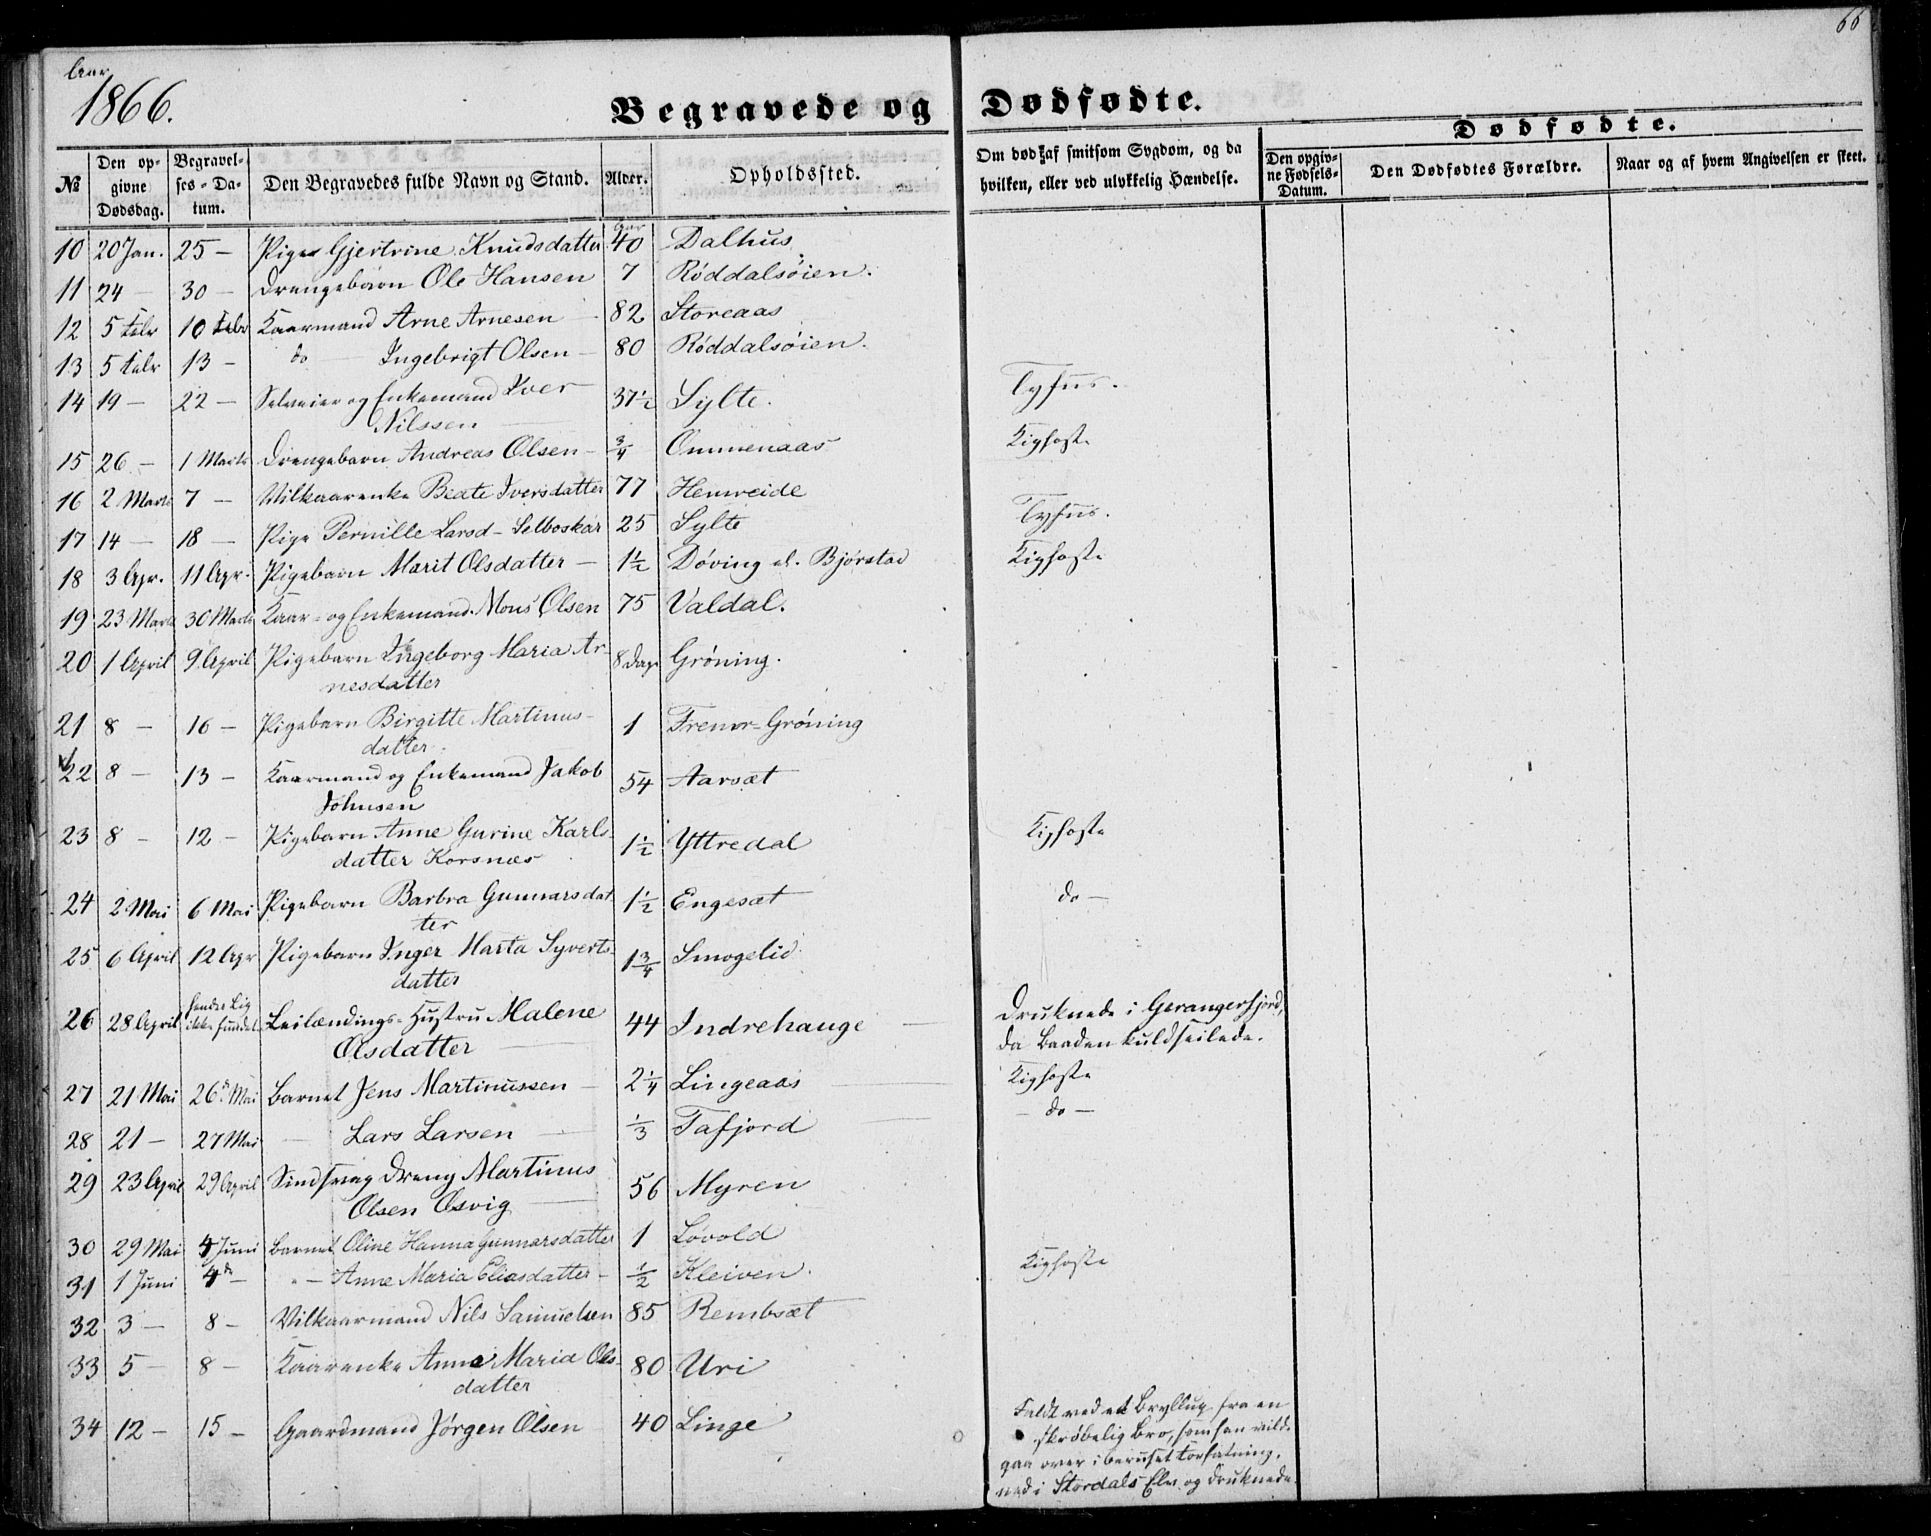 66
Aar
1866.
Begravede og Dødfødte.
Dødfødte.
№
Den opgivne Dødsdag.
Begravelses-Datum.
Den Begravedes fulde Navn og Stand.
Alder.
Opholdssted.
Om død af smitsom Sygdom, og da
hvilken, eller ved ulykkelig Hændelse.
Den opgivne Fødsels-Datum.
Den Dødfødtes Forældre.
Naar og af hvem Angivelsen er skeet.
Aar
10 20 Jan. 25 – Pige Gjertrine Knudsdatter 40 Dalhus
11 24 – 30 – Drengebarn Ole Hansen 7 Røddalsøien.
12 5 Febr 10 Febr Kaarmand Arne Arnesen 82 Storeaas
13 5 Febr 13 – do Ingebrigt Olsen – 80 Røddalsøien.
14 19 – 22 – Selveier og Enkemand Iver 37½ Sylte. Tyfus.
Nilssen
15 26 – 1 Marts Drengebarn Andreas Olsen – ¾ Ommenaas Kighoste
16 2 Marts 7 – Vilkaarenke Beate Iversdatter 77 Henreide
17 14 – 18 – Pige Pernille Larsd – Selboskar 25 Sylte Tyfus.
18 3 Apr. 11 Apr. Pigebarn Marit Olsdatter – 1½ Døving el. Bjørstad Kighoste
19 23 Marts 30 Marts Kaar- og Enkemand Mons Olsen 75 Valdal.
20 1 April 9 April Pigebarn Ingeborg Maria Ar- 8 Dage Grøning.
nesdatter
21 8 – 16 – Pigebarn Birgitte Martinus- 1 Fremr-Grøning
datter
22 8 – 13 – Kaarmand og Enkemand Jakob 54 Aarsæt
Johnsen
23 8 – 12 – Pigebarn Anne Gurine Karls 1½ Yttredal Kighoste
datter Korsnæs
24 2 Mai 6 Mai Pigebarn Barbra Gunnarsdat 1½ Engesæt do –
ter
25 6 April 12 Apr Pigebarn Inger Marta Syverts- 1¾ Smogelid
datter
26 28 April hendes Lig ikke fundet Leilændings-Hustru Malene 44 Indrehauge Druknede i Gerangerfjord,
Olsdatter da Baaden kuldseilede.
27 21 Mai 26de Mai Barnet Jens Martinussen – 2¼ Lingeaas Kighoste
28 21 – 27 Mai – Lars Larsen – ⅓ Tafjord – do –
29 23 April 29 April Sindsvag Dreng Martinus 56 Myren
Olsen Osvig
30 29 Mai 4 Juni Barnet Oline Hanna Gunnarsdatter 1 Løvold
31 1 Juni 4de – " – Anne Maria Eliasdatter – ½ Kleiven. Kighoste
32 3 – 8 – Vilkaarmand Nils Samuelsen 85 Rembsæt
33 5 – 8 – Kaarenke Anne Maria Ols- 80 Uri
datter
34 12 – 15 – Gaardmand Jørgen Olsen 40 Linge Faldt ved et Bryllup fra en
skrøbelig Bro, som han vilde
gaa over i beruset Forfatning,
ned i Stordals Elv og druknede